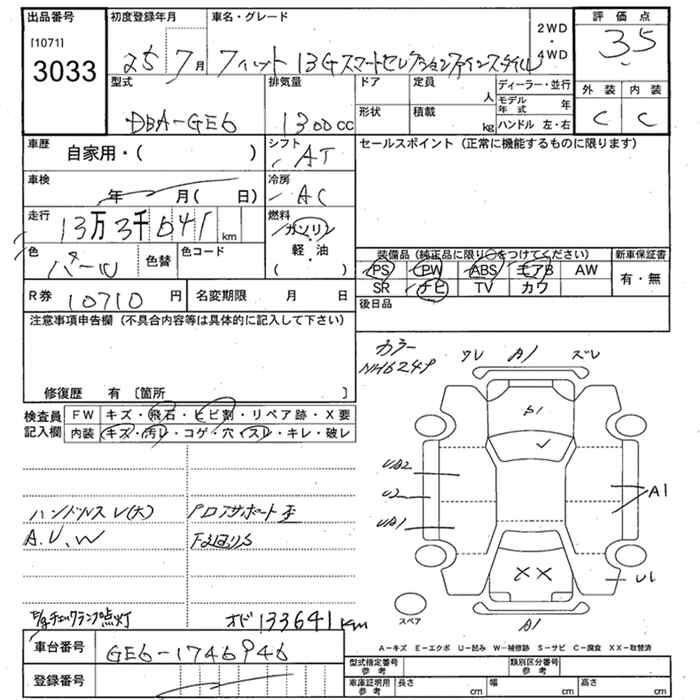 出品番号 初度登録年月 車名・グレード 2WD・4WD 評価点
[1071] 3033
25 7月 フィット 13Gスマートセレクションファインスタイル 3.5
型式 排気量 ドア 定員 人 ディーラー・並行 外装 内装
DBA-GE6 1300cc 形状 積載 kg モデル年式 年 C C
ハンドル 左・右
車歴 自家用・( ) シフト AT セールスポイント (正常に機能するものに限ります)
車検 年 月( 日) 冷房 AC
走行 13万3千641 km 燃料 ガソリン・軽・油 ( )
色 パール 色替 色コード 装備品 (純正品に限り○をつけてください) 新車保証書
PS PW ABS エアB AW 有・無
R券 10710円 名変期限 月 日 SR ナビ TV カワ
後日品
注意事項申告欄 (不具合内容等は具体的に記入して下さい)
カラー NH624P
ワレ A1 ズレ
修復歴 有 〔箇所 〕
検査員記入欄 FW キズ・飛石・ヒビ割・リペア跡・X要
内装 キズ・汚レ・コゲ・穴・スレ・キレ・破レ
B1
UA2
U2 A1
ハンドルスレ(大)
A.U.W UA1
XX
U1
チェックランプ点灯 オド133641km
スペア A1
A-キズ E-エクボ U-凹み W-補修跡 S-サビ C-腐食 XX-取替済
車台番号 GE6-1746946
型式指定番号 参考 類別区分番号 参考
登録番号
車庫証明用 参考 長さ cm 幅 cm 高さ cm